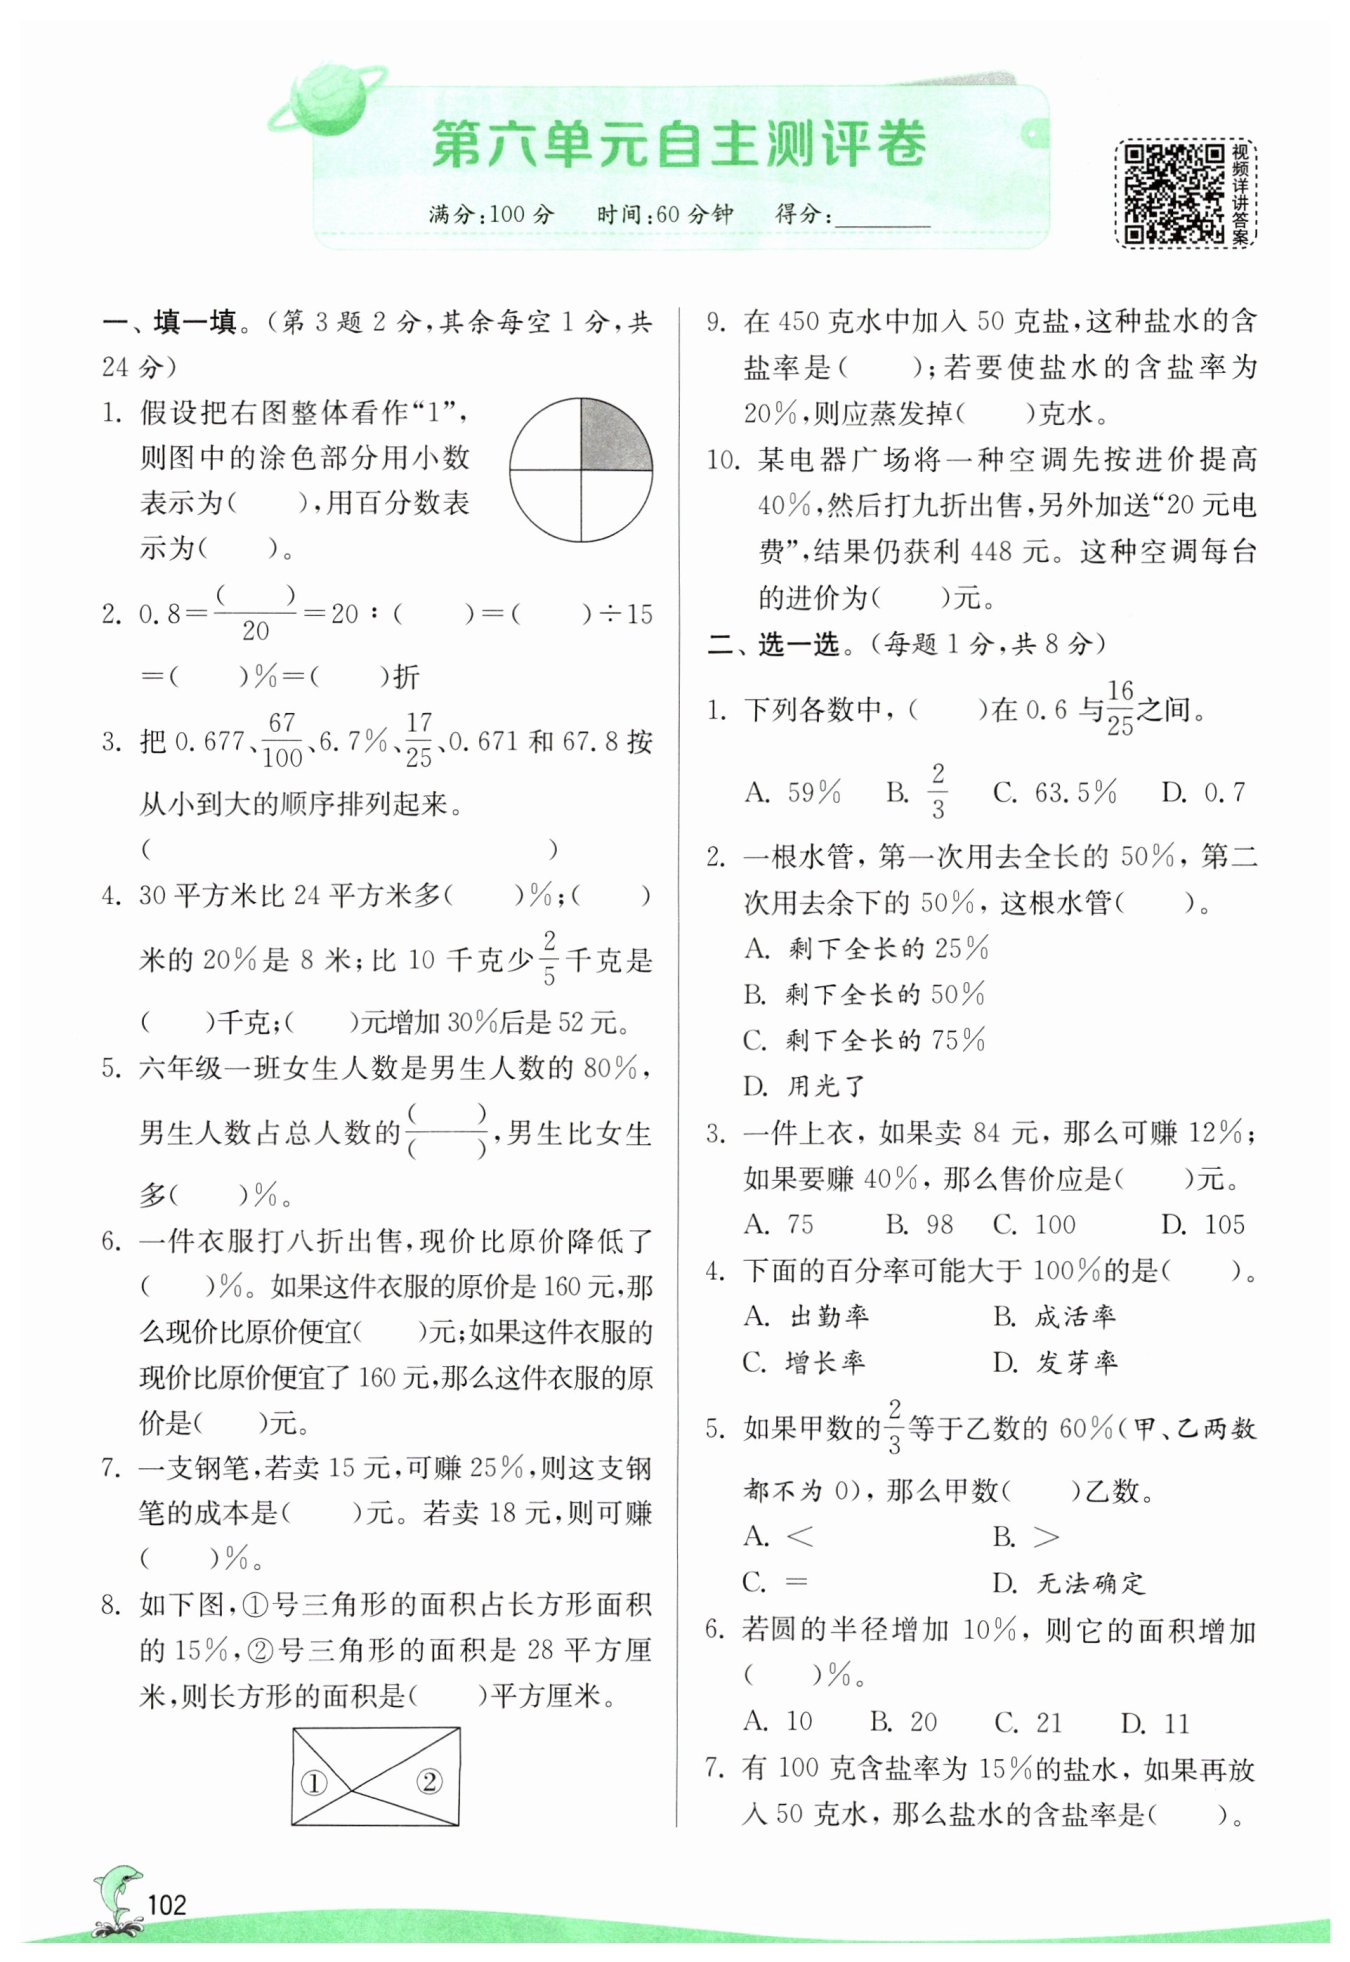 第六单元自主测评卷
满分:100分 时间:60分钟 得分:________
视频详讲答案
一、填一填。(第3题2分,其余每空1分,共
24分)
1. 假设把右图整体看作“1”,
则图中的涂色部分用小数
表示为( ),用百分数表
示为( )。
2. 0.8=( )/20=20∶( )=( )÷15
=( )%=( )折
3. 把0.677、67/100、6.7%、17/25、0.671和67.8按
从小到大的顺序排列起来。
( )
4. 30平方米比24平方米多( )%;( )
米的20%是8米;比10千克少2/5千克是
( )千克;( )元增加30%后是52元。
5. 六年级一班女生人数是男生人数的80%,
男生人数占总人数的( )/( ),男生比女生
多( )%。
6. 一件衣服打八折出售,现价比原价降低了
( )%。如果这件衣服的原价是160元,那
么现价比原价便宜( )元;如果这件衣服的
现价比原价便宜了160元,那么这件衣服的原
价是( )元。
7. 一支钢笔,若卖15元,可赚25%,则这支钢
笔的成本是( )元。若卖18元,则可赚
( )%。
8. 如下图,①号三角形的面积占长方形面积
的15%,②号三角形的面积是28平方厘
米,则长方形的面积是( )平方厘米。
① ②
9. 在450克水中加入50克盐,这种盐水的含
盐率是( );若要使盐水的含盐率为
20%,则应蒸发掉( )克水。
10. 某电器广场将一种空调先按进价提高
40%,然后打九折出售,另外加送“20元电
费”,结果仍获利448元。这种空调每台
的进价为( )元。
二、选一选。(每题1分,共8分)
1. 下列各数中,( )在0.6与16/25之间。
A. 59% B. 2/3 C. 63.5% D. 0.7
2. 一根水管,第一次用去全长的50%,第二
次用去余下的50%,这根水管( )。
A. 剩下全长的25%
B. 剩下全长的50%
C. 剩下全长的75%
D. 用光了
3. 一件上衣,如果卖84元,那么可赚12%;
如果要赚40%,那么售价应是( )元。
A. 75 B. 98 C. 100 D. 105
4. 下面的百分率可能大于100%的是( )。
A. 出勤率 B. 成活率
C. 增长率 D. 发芽率
5. 如果甲数的2/3等于乙数的60%(甲、乙两数
都不为0),那么甲数( )乙数。
A. < B. >
C. = D. 无法确定
6. 若圆的半径增加10%,则它的面积增加
( )%。
A. 10 B. 20 C. 21 D. 11
7. 有100克含盐率为15%的盐水,如果再放
入50克水,那么盐水的含盐率是( )。
102